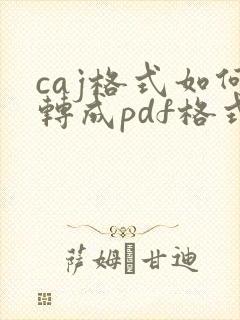 caj格式如何
轉成pdf格式
萨姆�甘迪